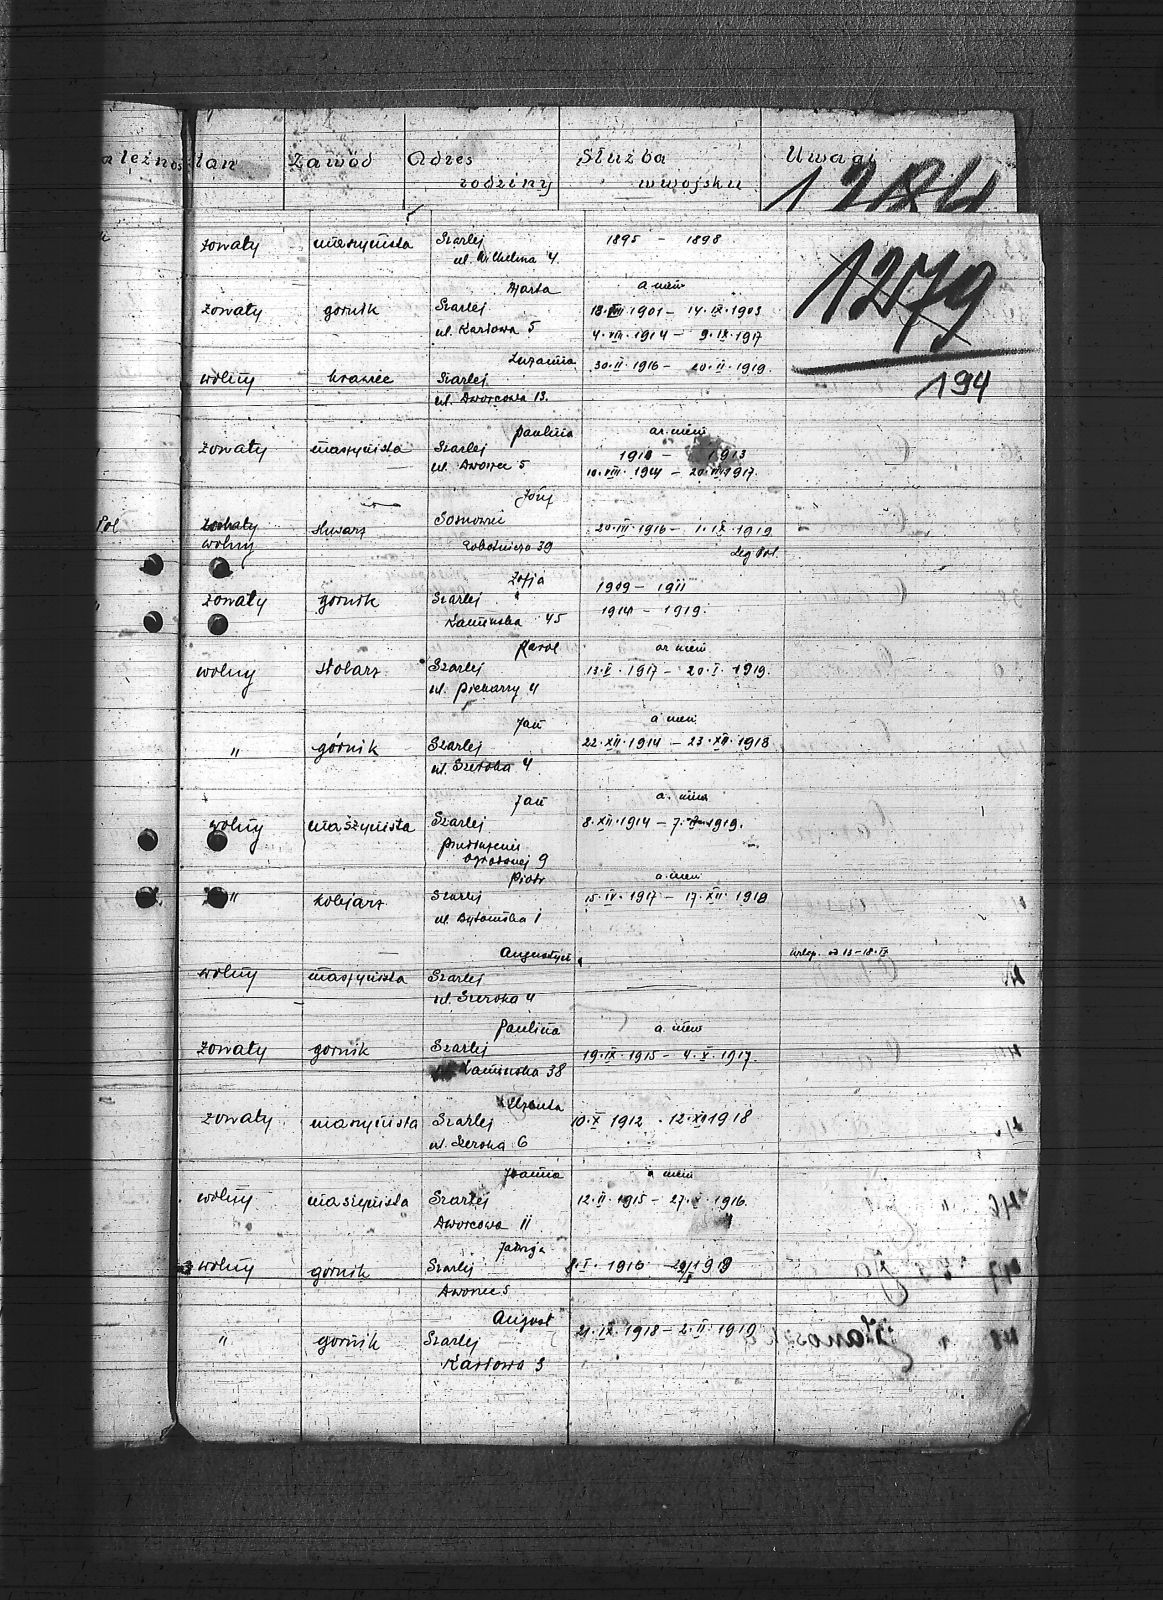 Stan Zawód Adres rodziny Służba w wojsku Uwagi
1284
1279
194
żonaty maszynista Szarlej 1895 - 1898
ul. Wilhelma 4.
Marta a niem
żonaty górnik Szarlej 13. VIII 1901 - 14. IX. 1903
ul. Karłowa 5 4. VIII. 1914 - 9. IX. 1917
Zuzanna 30. II. 1916 - 20. II. 1919.
wolny krawiec Szarlej
ul. Dworcowa 13.
Paulina ar. niem
żonaty maszynista Szarlej 1910 - 1913
ul. Dworc 5 10. VIII. 1914 - 20. III. 1917.
Józef
Pol żonaty Sosnowic 20. III. 1916 - 1. IX. 1919
wolny Robotnicza 39 Leg Pol.
Zofja 1909 - 1911
żonaty górnik Szarlej 1914 - 1919.
Kamieńska 45
Karol ar niem
wolny stolarz Szarlej 13. V. 1917 - 20. I. 1919.
ul. Piekarzy 4
Jan a niem
" górnik Szarlej 22. XII. 1914 - 23. XII. 1918
ul. Szeroka 4.
Jan a. niem
wolny maszynista Szarlej 8. XII. 1914 - 7. 1919.
Ogrodowej 9
Piotr a. niem
" kolejarz Szarlej 15. IV. 1917 - 17. XII. 1918
ul. Bytomska 1
Augustyn urlop. od 13-18. IV
wolny maszynista Szarlej
ul. Szeroka 4
Paulina a. niem
żonaty górnik Szarlej 19. IX. 1915 - 4. X. 1917.
Kamieńska 38
Urszula
żonaty maszynista Szarlej 10. X 1912 - 12. XI 1918
ul. Szeroka 6
Joanna a niem
wolny maszynista Szarlej 12. II. 1915 - 27. X. 1916.
Dworcowa 11
Jadwiga
wolny górnik Szarlej 8. I. 1916
Dworcec 5
August 21. IX. 1918 - 2. II. 1919
" górnik Szarlej
Karłowa 3